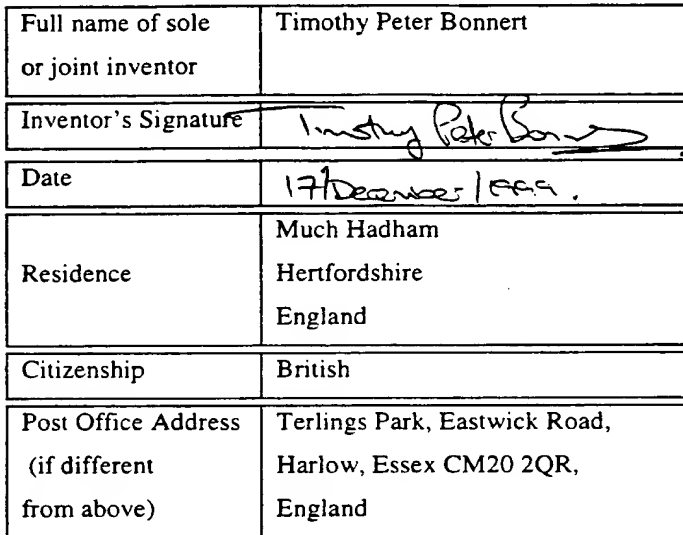 Full name of sole
or joint inventor
Timothy Peter Bonnert
Inventor's Signature
Timothy Peter Bonnert
Date
17/December/1999.
Residence
Much Hadham
Hertfordshire
England
Citizenship
British
Post Office Address
(if different
from above)
Terlings Park, Eastwick Road,
Harlow, Essex CM20 2QR,
England